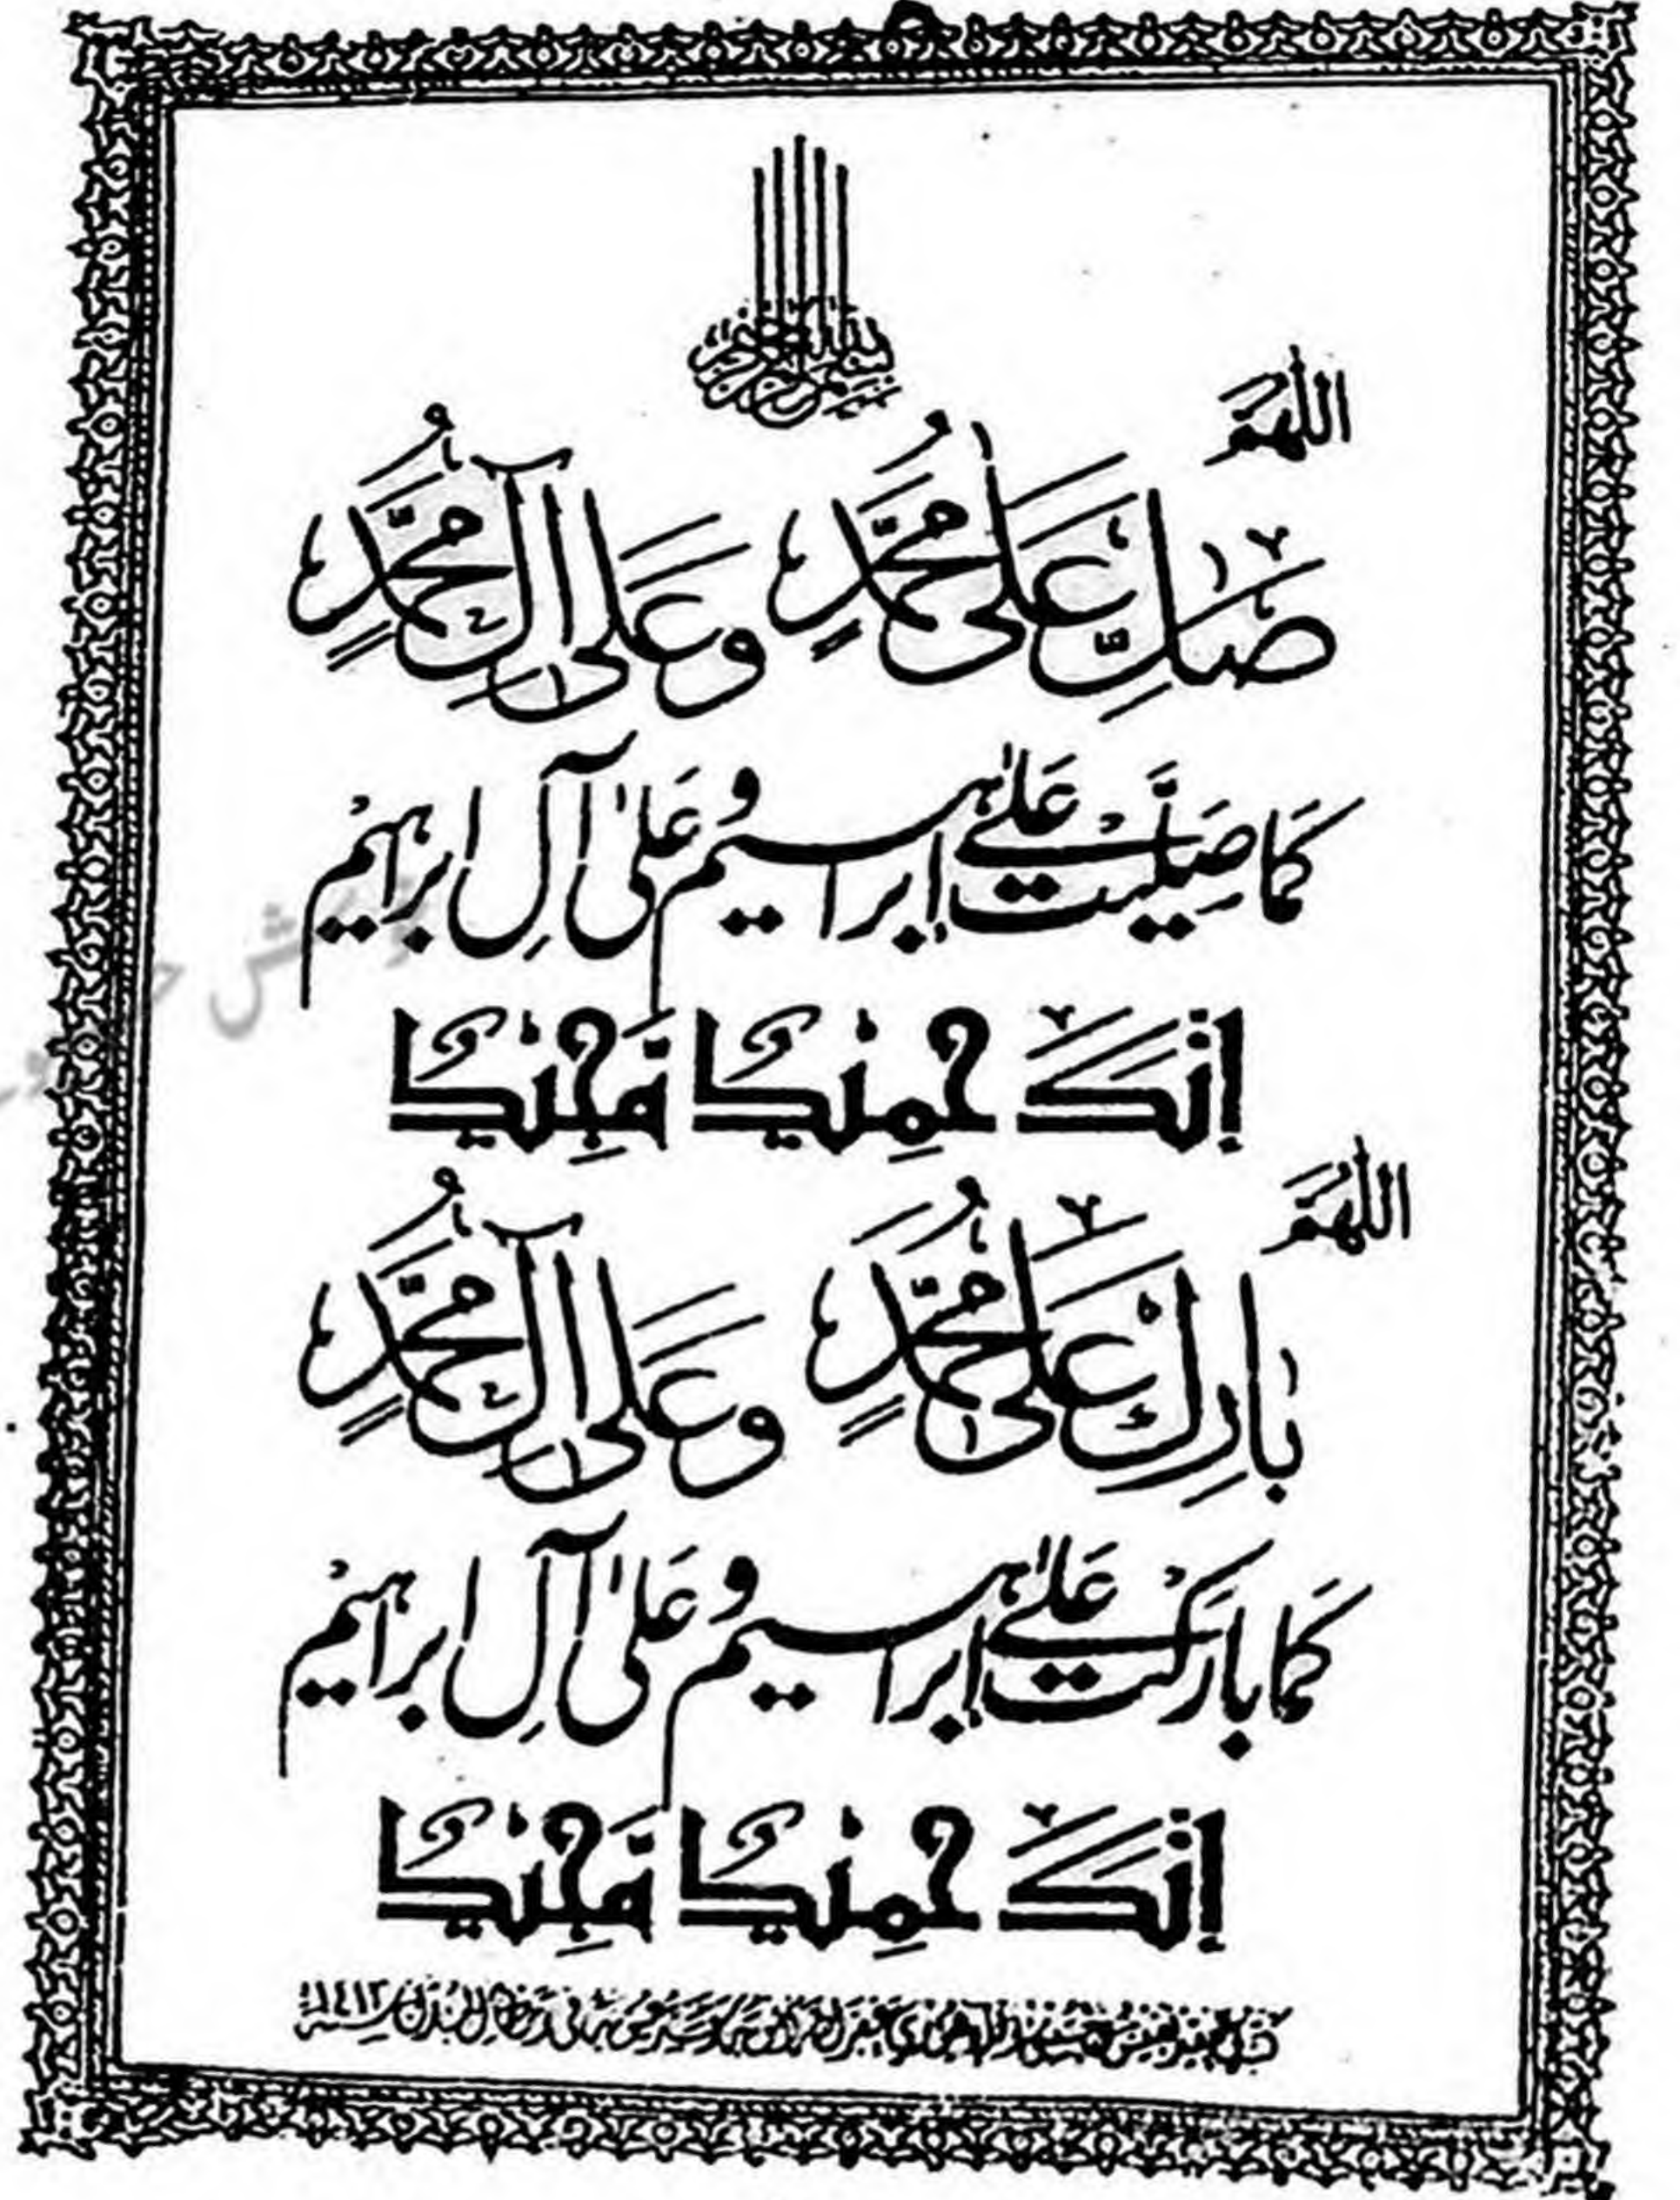 بسم الله الرحمن الرحيم
اللهم
صَلِّ عَلَى مُحَمَّدٍ وَعَلَى آلِ مُحَمَّدٍ
كَمَا صَلَّيْتَ عَلَىٰ إِبْرَاهِيمَ وَعَلَىٰ آلِ إِبْرَاهِيمَ
إِنَّكَ حَمِيْدٌ مَّجِيْدٌ
اللهم
بَارِكْ عَلَى مُحَمَّدٍ وَعَلَى آلِ مُحَمَّدٍ
كَمَا بَارَكْتَ عَلَىٰ إِبْرَاهِيمَ وَعَلَىٰ آلِ إِبْرَاهِيمَ
إِنَّكَ حَمِيْدٌ مَّجِيْدٌ
١٤١٢